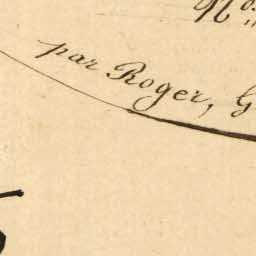 No.
par Roger, G